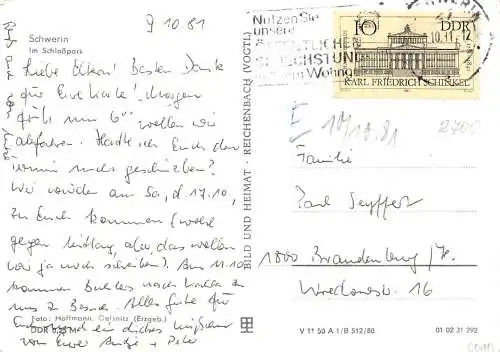 9.10.81
Schwerin
Im Schloßpark
Liebe Eltern! Besten Dank
für Eure Karte! Morgen
früh um 6°° wollen wir
abfahren. Hatte ich Euch den
Termin noch geschrieben?
Wir würden am Sa, d. 17.10,
zu Euch kommen (wohl
gegen Mittag, aber das wollen
wir ja noch schreiben). Am 11.10.
kommen noch
uns zu Besuch. Alles Gute für
Euch und ein dickes Küßchen
von Eurer Antje + Peter
Foto: Hoffmann, Oelsnitz (Erzgeb.)
BILD UND HEIMAT · REICHENBACH (VOGTL)
Nutzen Sie
unsere
SPRECHSTUND
Wohng
SCHWERIN
10.11.-12
10 DDR
KARL FRIEDRICH SCHINKEL
E 10/10.81
2700
Familie
Paul Seyffert
1800 Brandenburg/H.
Wredowstr. 16
V 11 50 A 1/B 512/80
01 02 31 292